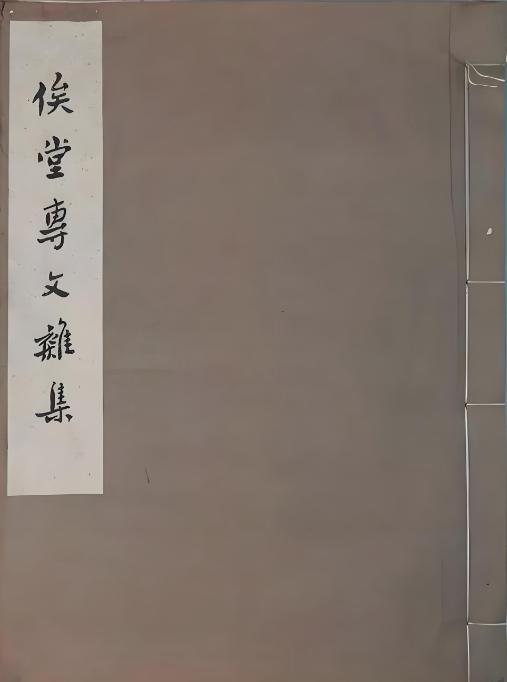 俟堂專文雜集